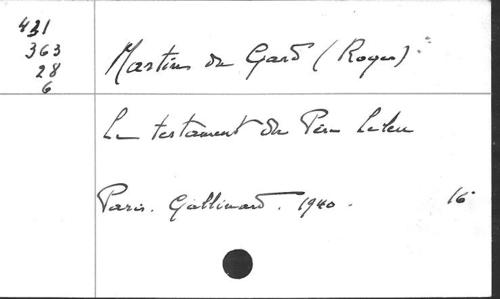 431
363
28
6
Martin du Gard (Roger).
Le testament du Père Leleu
Paris. Gallimard. 1940. 16°